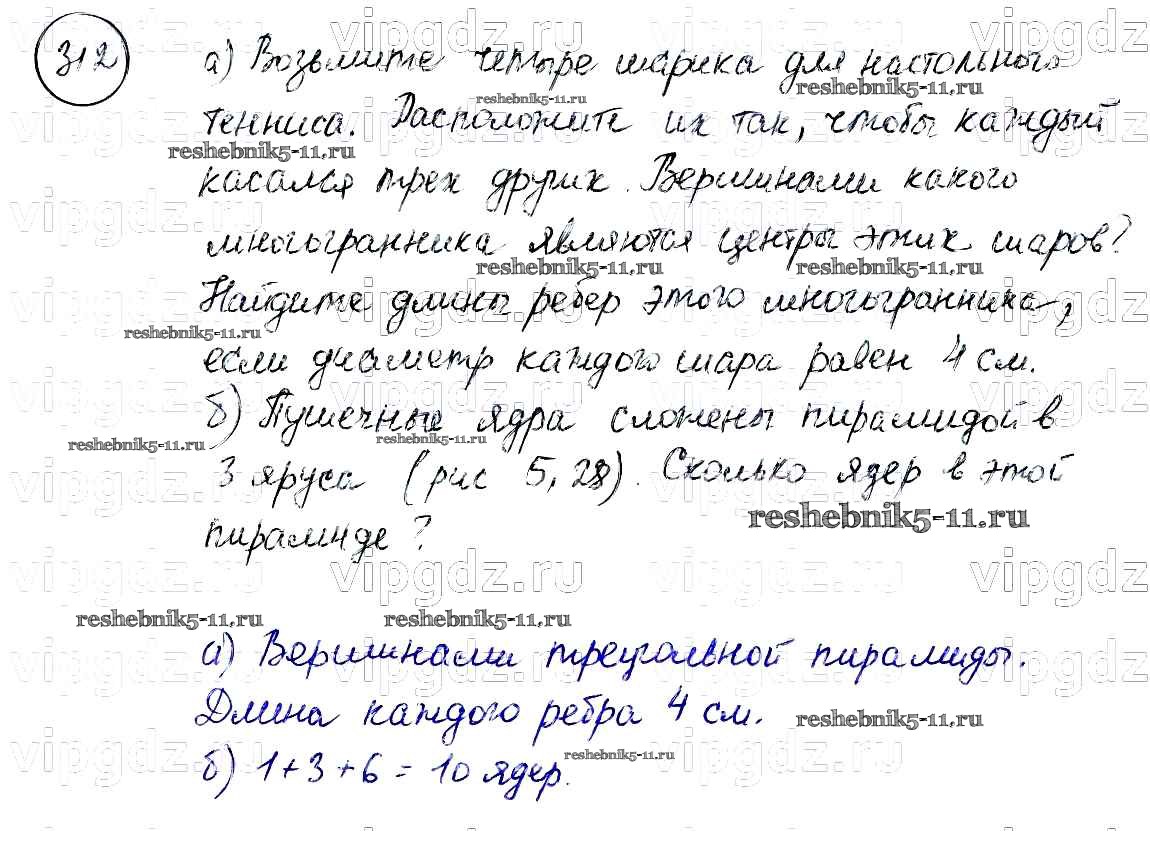 312
а) Возьмите четыре шарика для настольного
тенниса. Расположите их так, чтобы каждый
касался трех других. Вершинами какого
многогранника являются центры этих шаров?
Найдите длины ребер этого многогранника,
если диаметр каждого шара равен 4 см.
б) Пушечные ядра сложены пирамидой в
3 яруса (рис 5,28). Сколько ядер в этой
пирамиде?
а) Вершинами треугольной пирамиды.
Длина каждого ребра 4 см.
б) 1+3+6=10 ядер.
vipgdz.ru
reshebnik5-11.ru